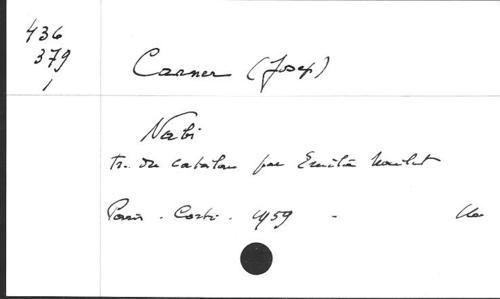 436
379
1
Carner (Josep)
Nabi
tr. du catalan par Emilie Noulet
Paris. Corti. 1959 -